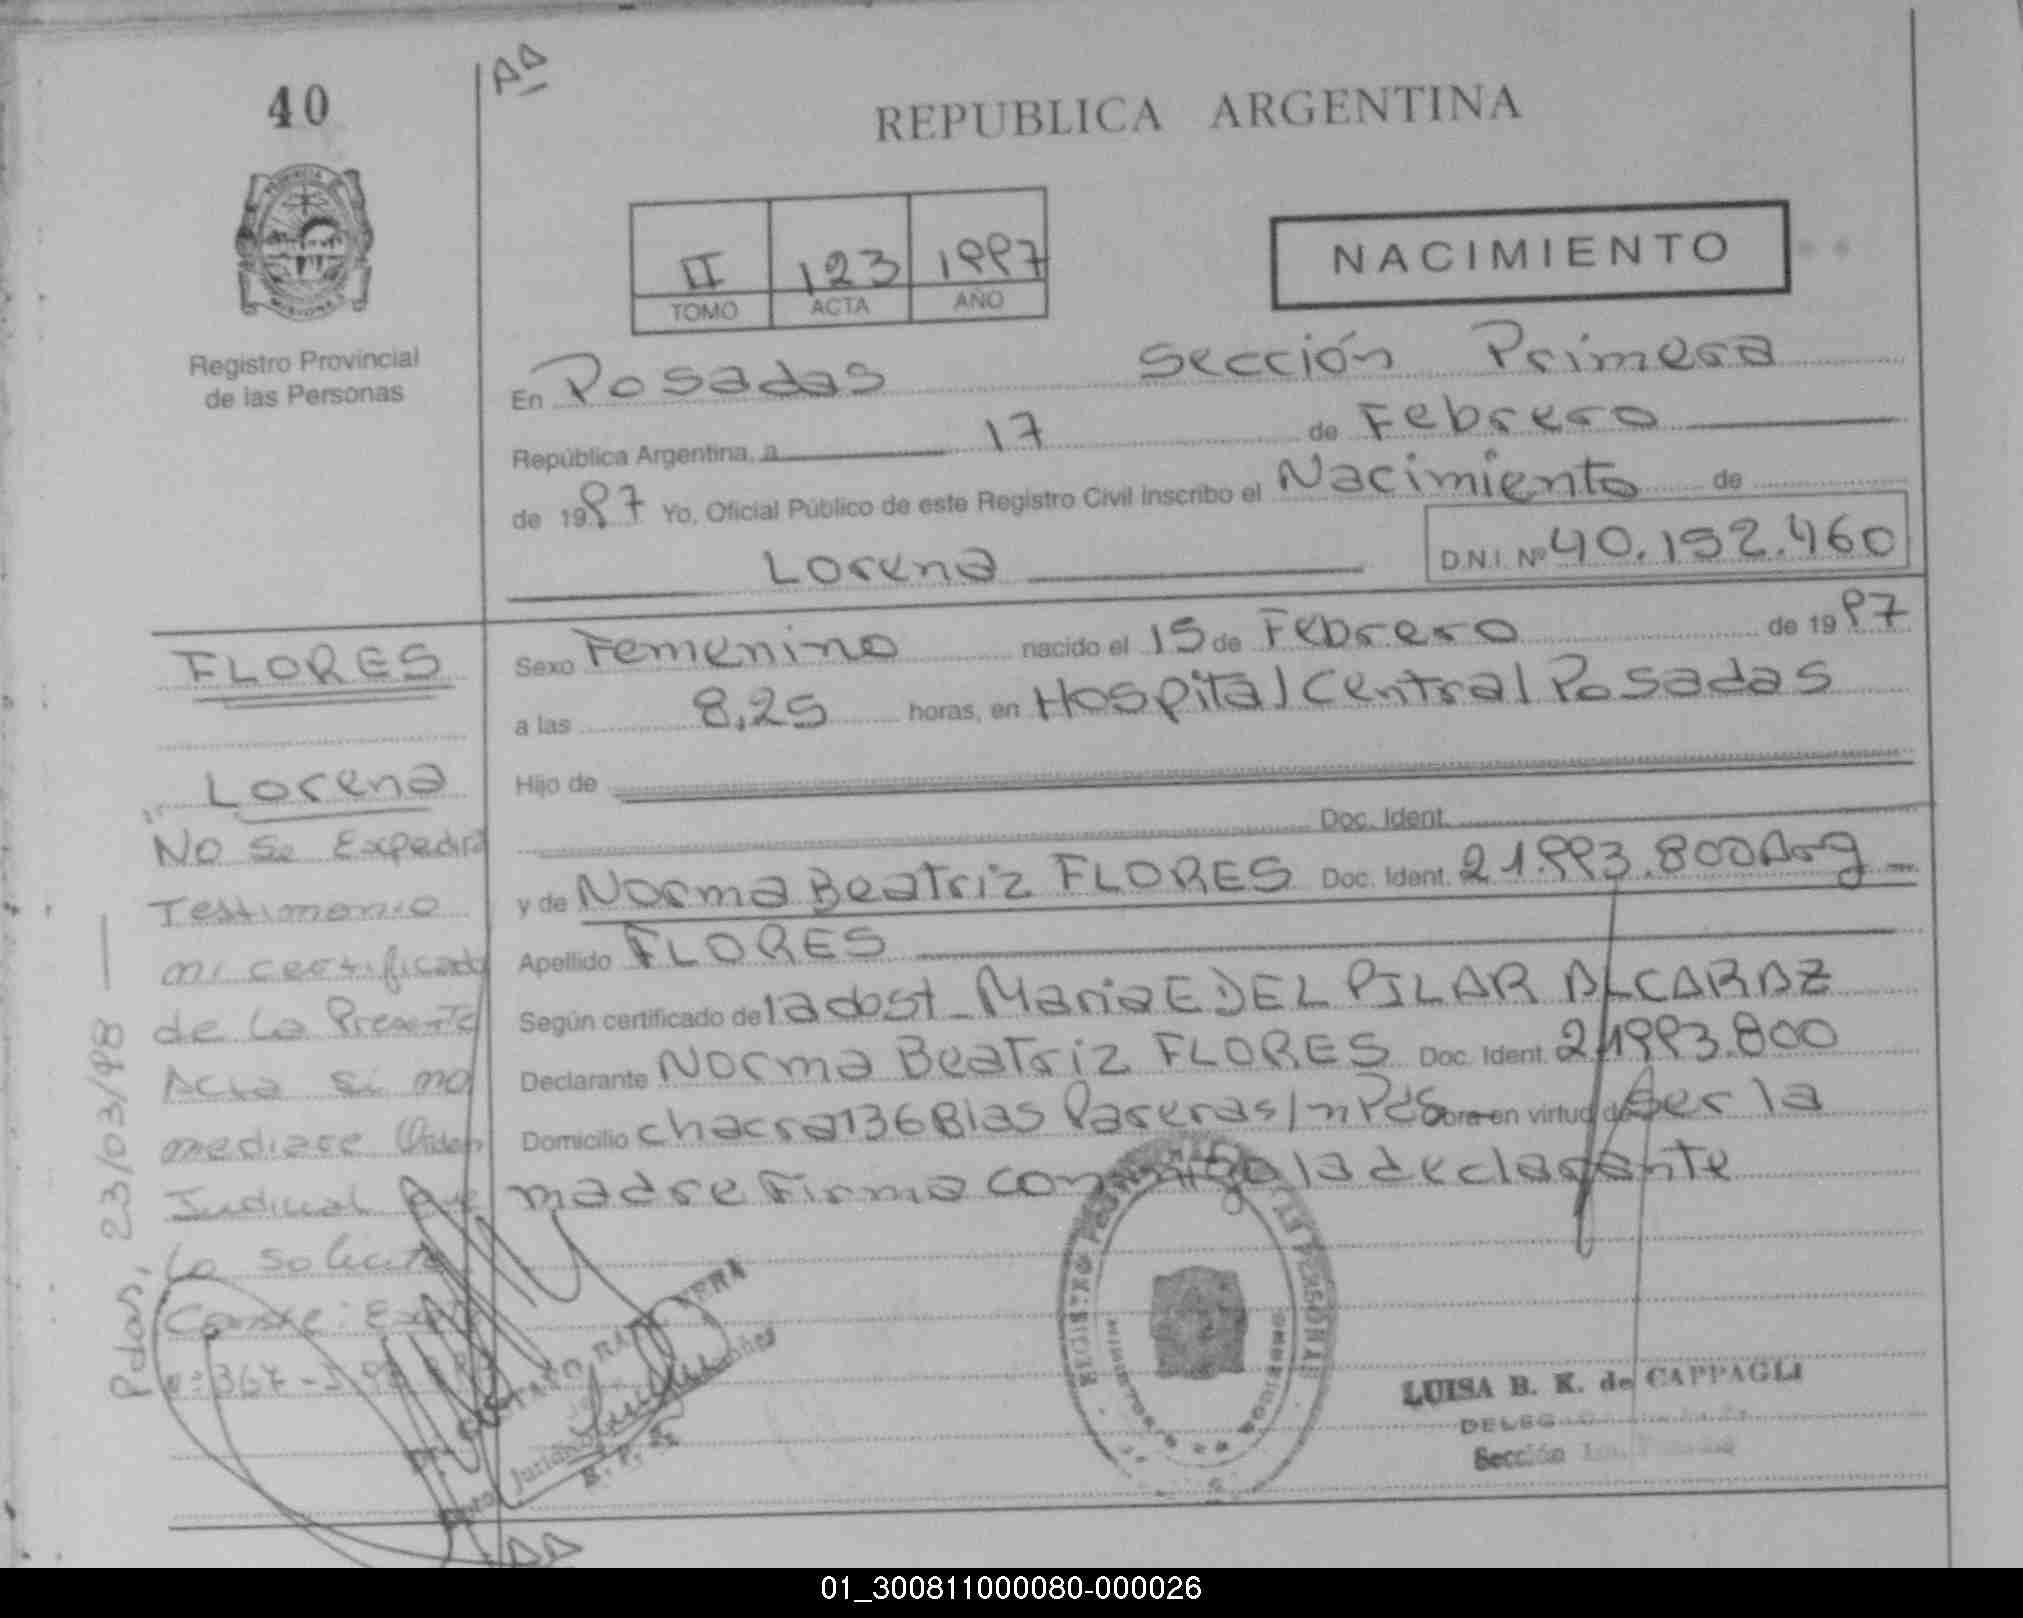 40
AA
REPUBLICA ARGENTINA
II 123 1997
TOMO ACTA AÑO
NACIMIENTO
Registro Provincial
de las Personas
En Posadas Sección Primera
República Argentina, a 17 de Febrero
de 1997 Yo, Oficial Público de este Registro Civil inscribo el Nacimiento de
Lorena D.N.I. Nº 40.152.460
FLORES
Lorena
No Se Expedirá
Testimonio
ni certificado
de La Presente
Acta si no
mediare Orden
Judicial que
Lo solicite
Conste: Exp
Pdas, 23/03/98
Sexo Femenino nacido el 15 de Febrero de 1997
a las 8,25 horas, en Hospital Central Posadas
Hijo de
Doc. Ident.
y de Norma Beatriz FLORES Doc. Ident. 21.993.800 Arg
Apellido FLORES
Según certificado de la obst. Maria E DEL PILAR ALCARAZ
Declarante Norma Beatriz FLORES Doc. Ident. 21993.800
Domicilio chacra 136 Blas Pareras s/n Pds obra en virtud de ser la
madre Firma conmigo la declarante
REGISTRO PERSONAS
LUISA B. K. de CAPPAGLI
Sección
AA
01_300811000080-000026